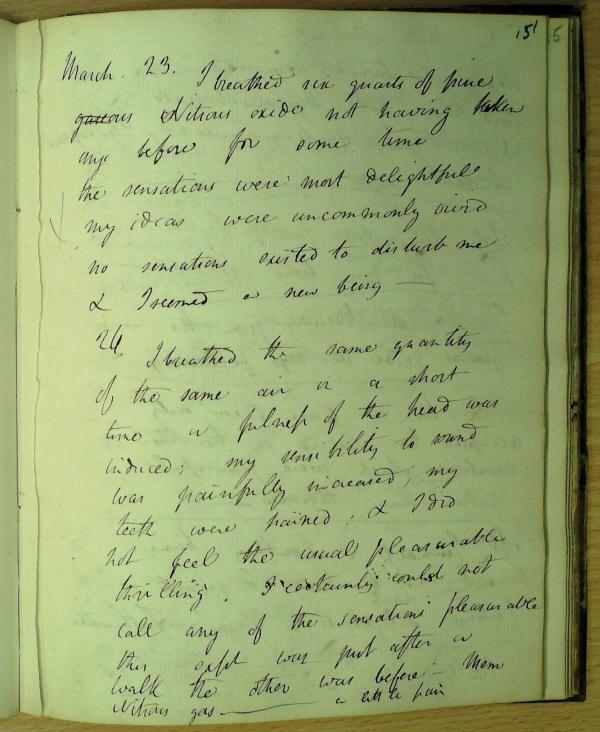 151 5
March. 23. I breathed six quarts of pure
gaseous Nitrous oxide not having taken
any before for some time
the sensations were most delightful
my ideas were uncommonly vivid
no sensations existed to disturb me
& I seemed a new being —
24. I breathed the same quantity
of the same air in a short
time a fulness of the head was
induced; my sensibility to sound
was painfully increased, my
teeth were pained; & I did
not feel the usual pleasurable
thrilling. I certainly could not
call any of the sensations pleasurable
this expt was just after a
walk the other was before — Mem
Nitrous gas — a little pain